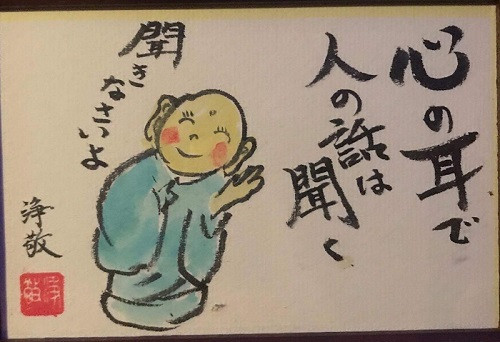 心の耳で
人の話は
聞く
聞きなさいよ
浄敬